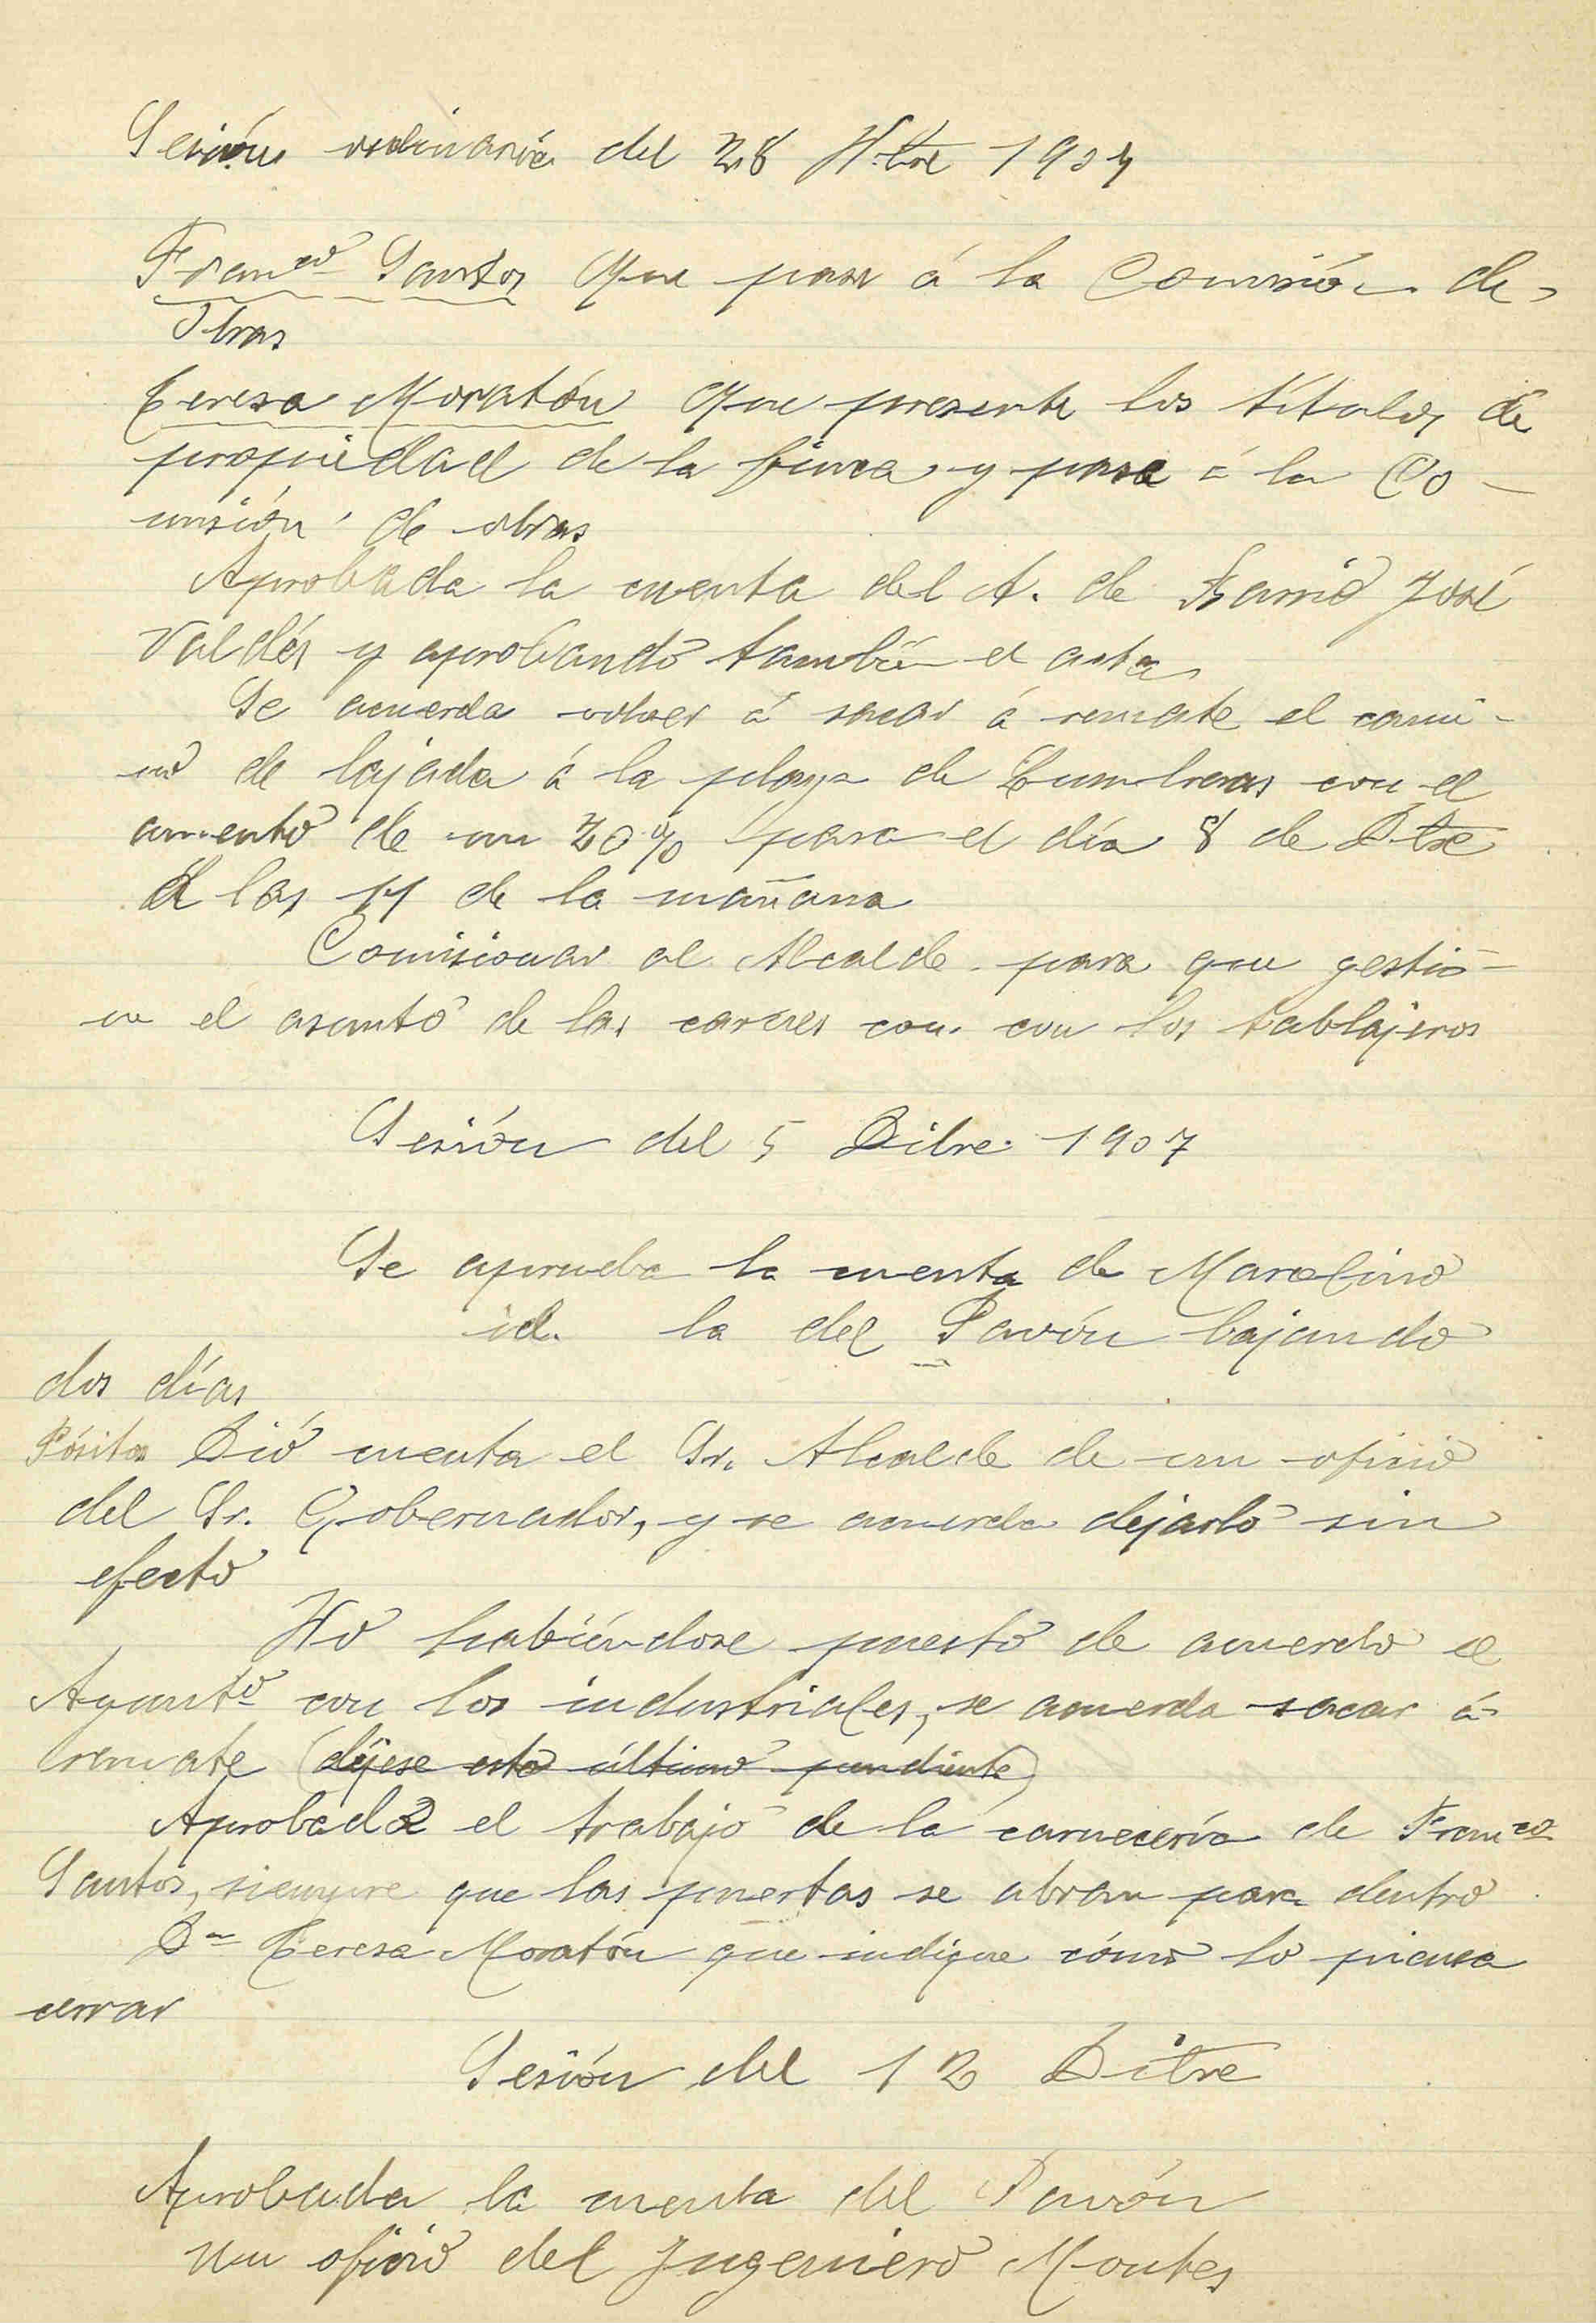 Sesión ordinaria del 28 N.bre 1907
Franco Santos Que pase á la Comisión de
Obras
Teresa Moratón Que presente los títulos de
propiedad de la finca y pase á la Co-
misión de obras
Aprobada la cuenta del A. de Barrio José
Valdés y aprobando también el acta
Se acuerda volver á sacar á remate el cami-
no de bajada á la playa de Cumbreras con el
aumento de un 20% para el día 8 de Dbre
á las 11 de la mañana
Comisionar al Alcalde para que gestio-
ne el asunto de las carnes con con los tablajeros
Sesión del 5 Dibre 1907
Se aprueba la cuenta de Marcelino
id. la del Pavón bajando
dos días
Pósitos Dió cuenta el Sr. Alcalde de un oficio
del Sr. Gobernador, y se acuerda dejarlo sin
efecto
No habiéndose puesto de acuerdo el
Ayuntº con los industriales, se acuerda sacar á
remate (déjese esto último pendiente)
Aprobada el trabajo de la carnecería de Franco
Santos, siempre que las puertas se abran para dentro
Dª Teresa Moratón que indique cómo lo piensa
cerrar
Sesión del 12 Ditre
Aprobada la cuenta del Pavón
Un oficio del Ingeniero Montes